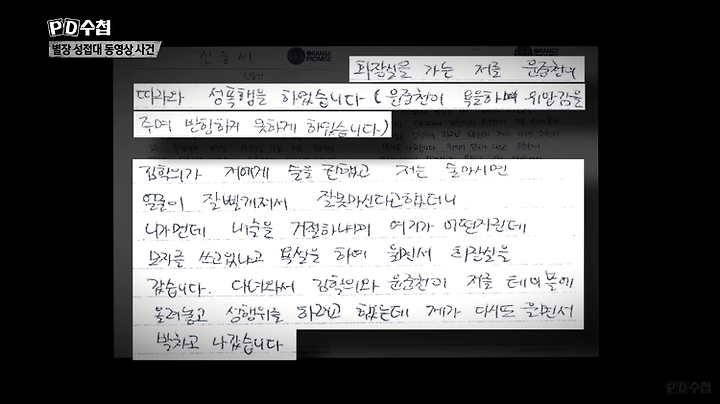 PD수첩
별장 성접대 동영상 사건
진술서
ORANGE
PROMISE
화장실을 가는 저를 윤중천이
따라와 성폭행을 하였습니다 (윤중천이 욕을하며 위압감을
주며 반항하지 못하게 하였습니다.)
김학의가 저에게 술을 권했고 저는 술마시면
얼굴이 잘빨개져서 잘못마신다고했더니
니가먼데 내술을 거절하냐며 여기가 어떤자린데
모자를 쓰고있냐고 욕설을 하여 울면서 화장실을
갔습니다. 다녀와서 김학의와 윤중천이 저를 테이블에
올려놓고 성행위를 하려고 했는데 제가 다시또 울면서
박차고 나갔습니다
PD수첩